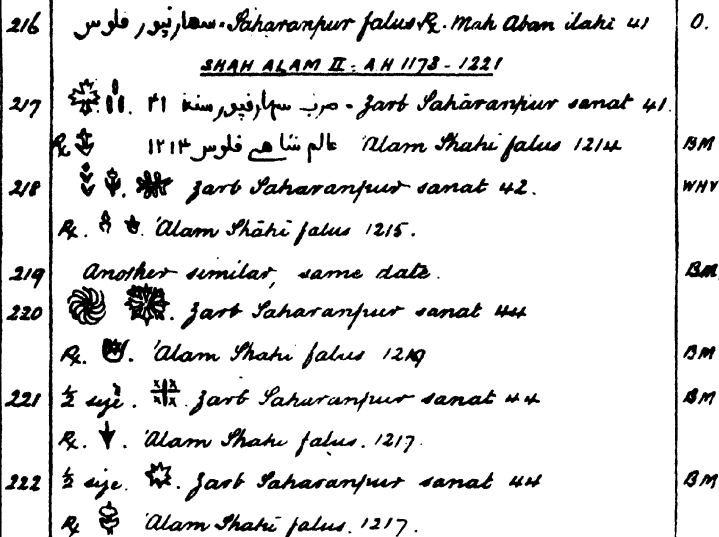 216 سهارنپور فلوس. Saharanpur falus ℞. Mah Aban ilahi 41 O.
SHAH ALAM II: AH 1173 - 1221
217 ضرب سهارنپور سنة ۴۱ - Zarb Sahāranpur sanat 41.
℞ عالم شاهي فلوس ۱۲۱۴ 'Alam Shahi falus 1214 BM
218 Zarb Saharanpur sanat 42. WHV
℞. 'Alam Shāhī falus 1215.
219 Another similar, same date. BM
220 Zarb Saharanpur sanat 44
℞. 'Alam Shahi falus 1219 BM
221 ½ size. Zarb Saharanpur sanat 44 BM
℞. 'Alam Shahi falus. 1217.
222 ½ size. Zarb Saharanpur sanat 44 BM
℞ 'Alam Shahi falus. 1217.